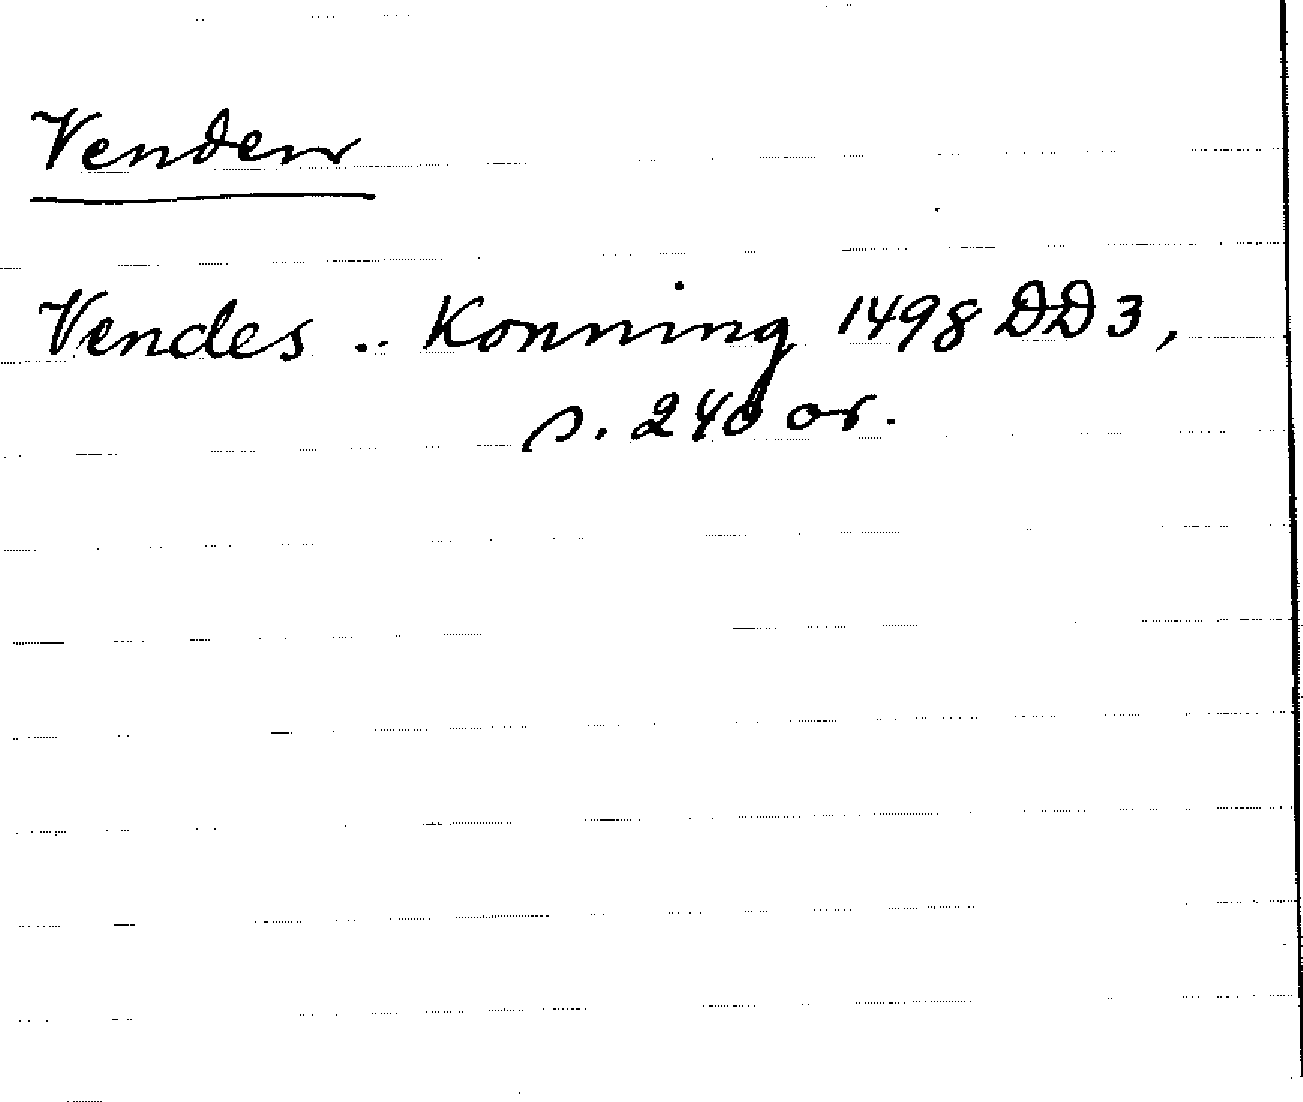 Vender
Vendes .. Konning 1498 DD3,
s. 240 or.